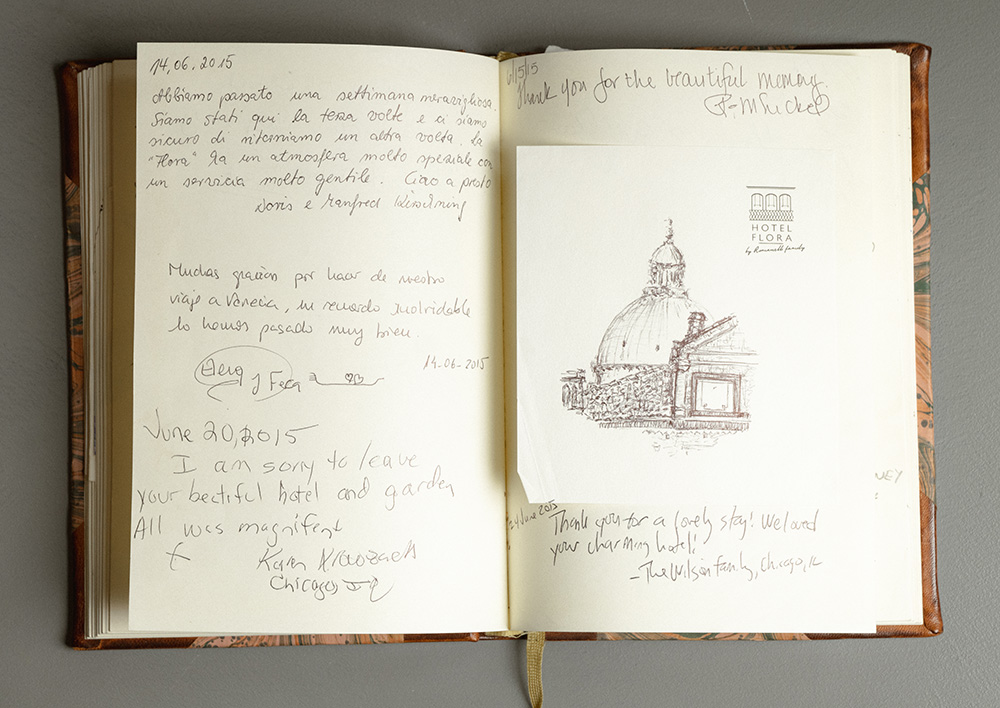 14.06.2015
Abbiamo passato una settimana meravigliosa.
Siamo stati qui la terza volta e ci siamo
sicuro di ritorniamo un altra volta. La
"Flora" ha un atmosfera molto speziale con
un servicia molto gentile. Ciao a presto
Doris e Manfred
Muchas gracias por hacer de nuestro
viaje a Venecia, un recuerdo inolvidable
lo hemos pasado muy bien.
14-06-2015
June 20, 2015
I am sorry to leave
your beatiful hotel and garden
All was magnifent
Karen
Chicago, IL
6/15/15
Thank you for the beautiful memory.
HOTEL
FLORA
by Romanelli family
24 June 2015
Thank you for a lovely stay! We loved
your charming hotel!
- The Wilson family, Chicago, IL